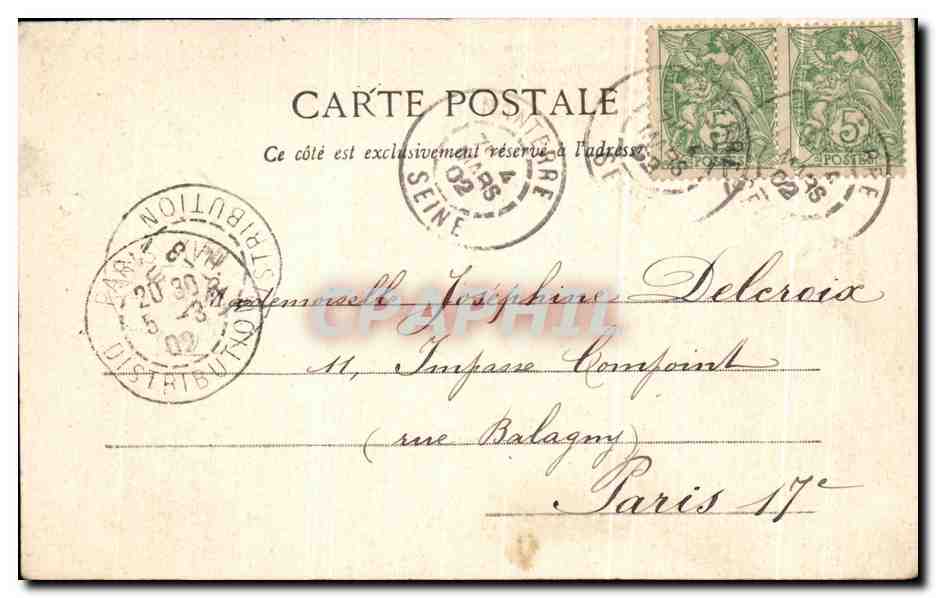 CARTE POSTALE
Ce côté est exclusivement réservé à l'adresse
5 5
POSTES POSTES
4 MARS 02
SEINE
PARIS XVII
20 30
5 -3
02
DISTRIBUTION
DISTRIBUTION
Mademoiselle Joséphine Delcroix
11, Impasse Compoint
(rue Balagny)
Paris 17e
CPAPHIL